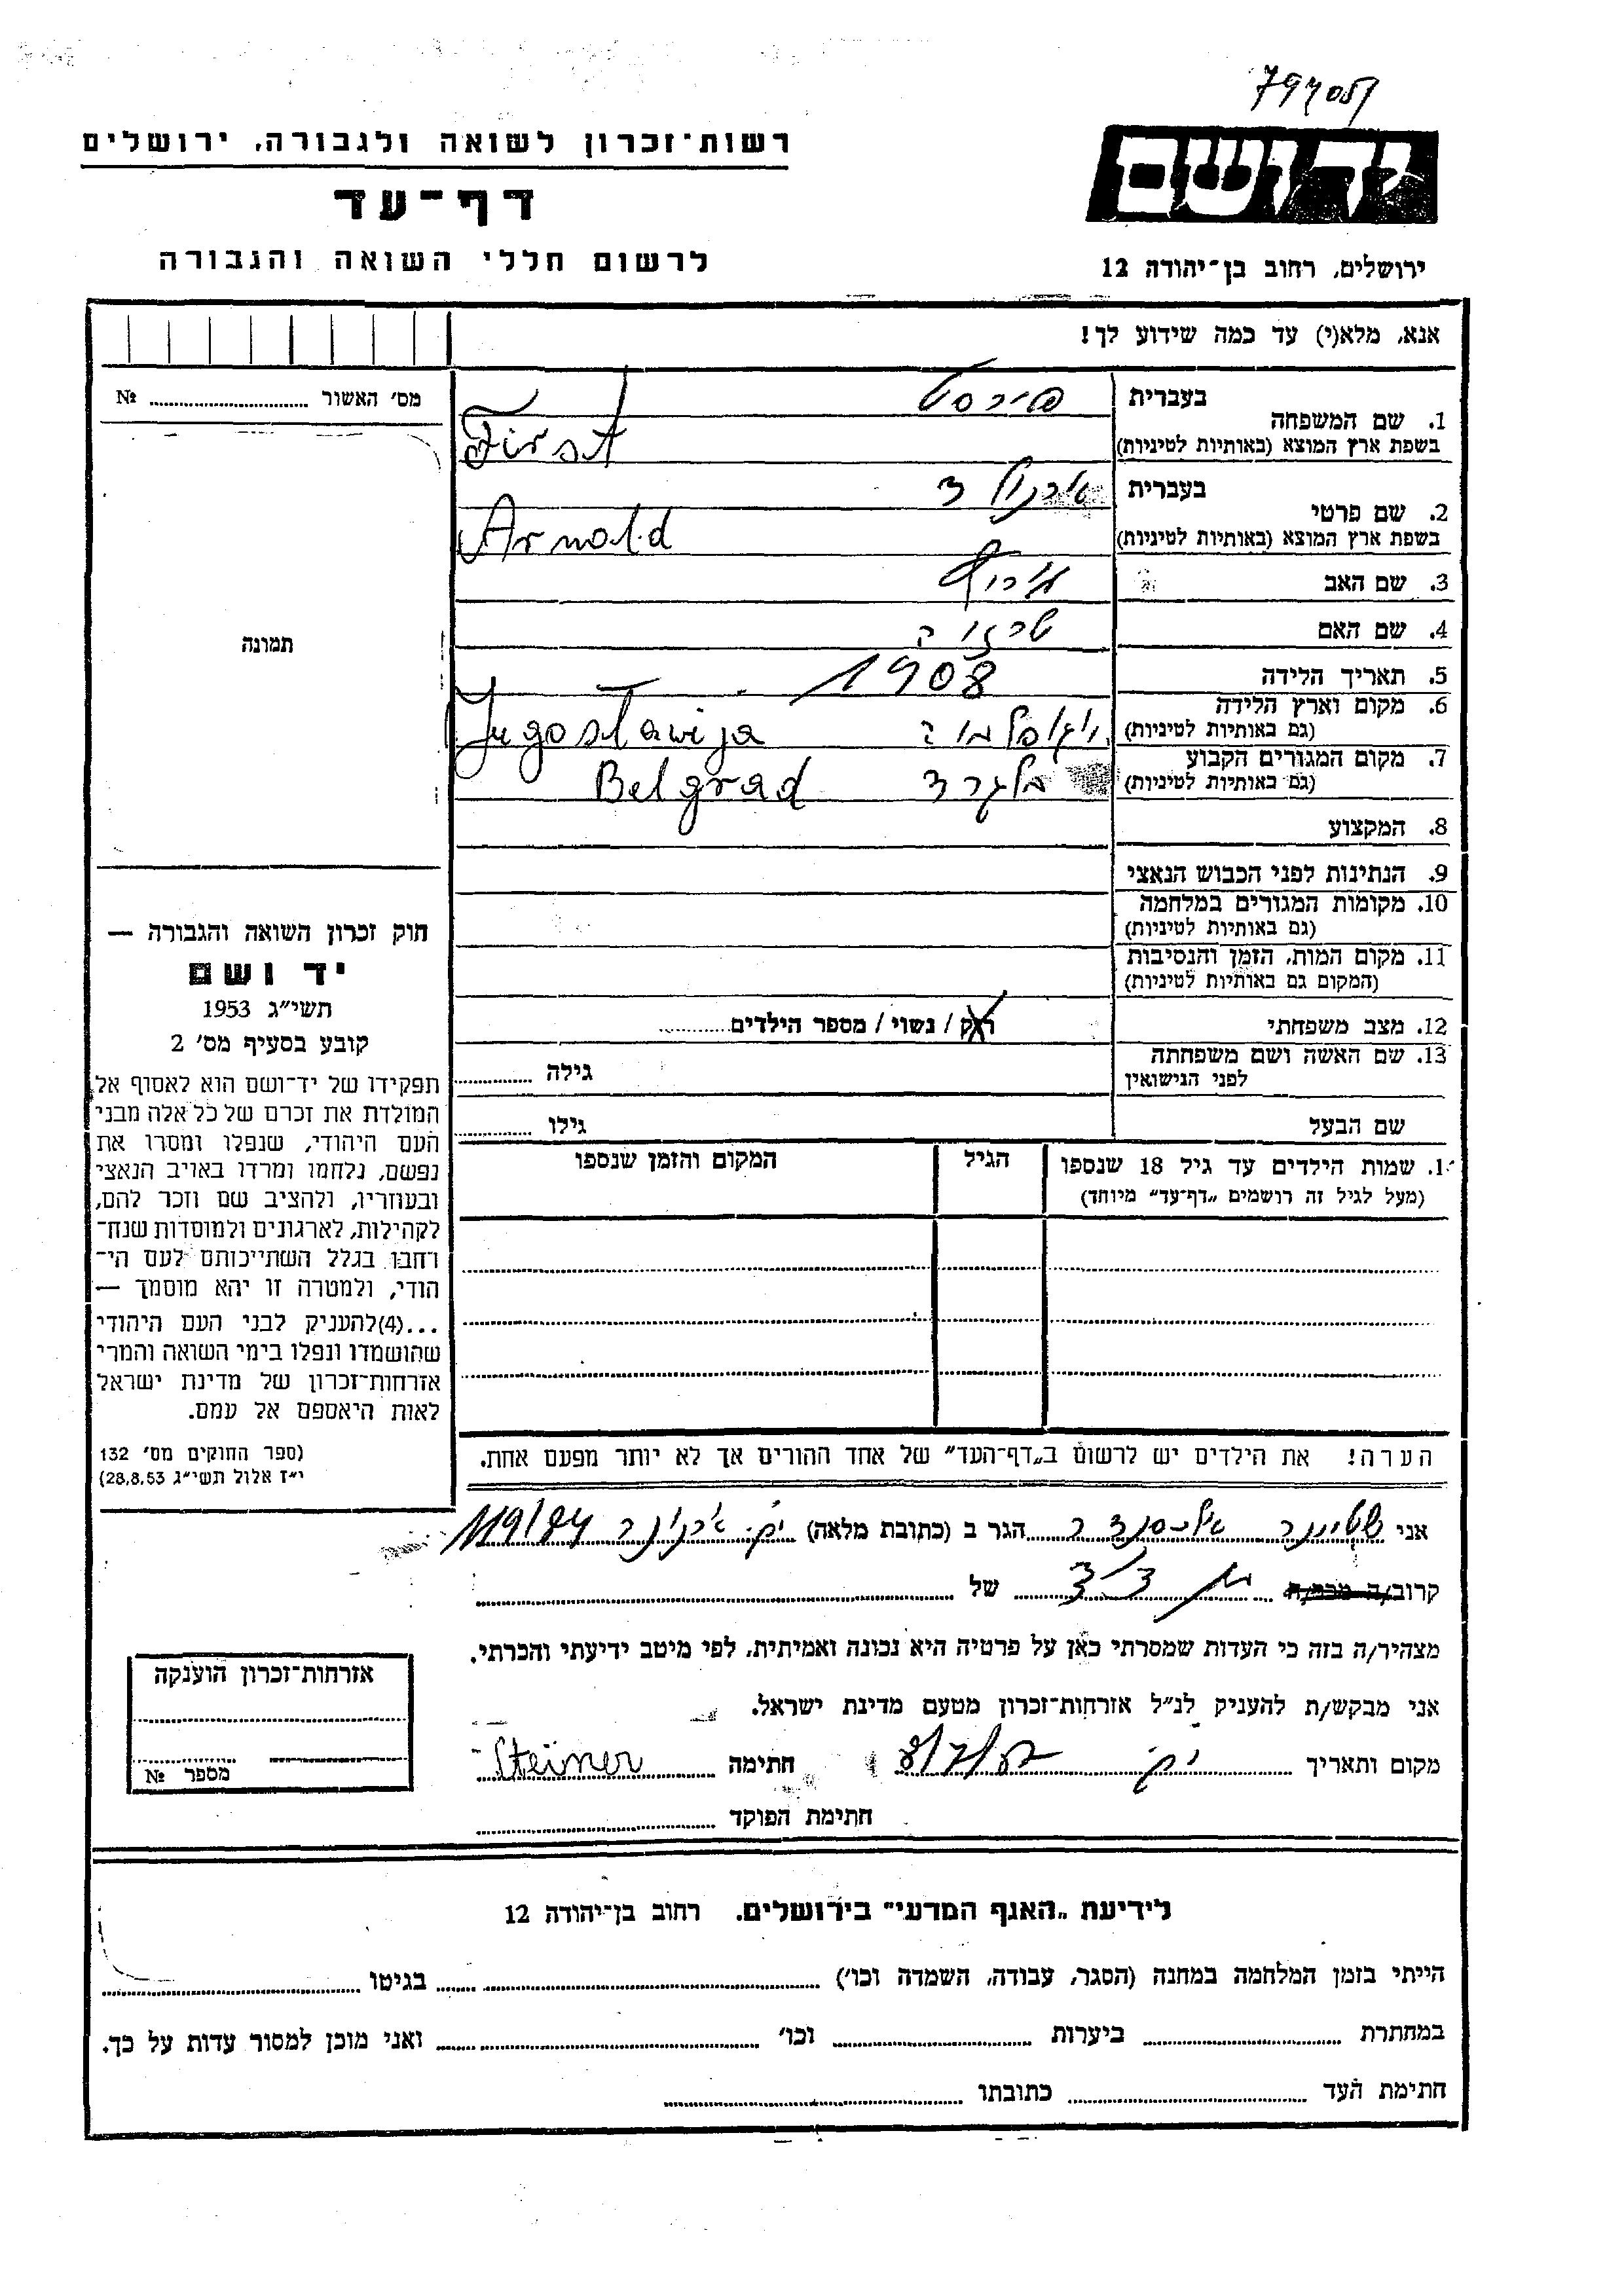 רשות־זכרון לשואה ולגבורה, ירושלים
דף־עד
לרשום חללי השואה והגבורה
יד ושם
ירושלים, רחוב בן־יהודה 12
אנא, מלא(י) עד כמה שידוע לך!
מס׳ האשור № ....
תמונה
1. שם המשפחה בעברית פירסט
בשפת ארץ המוצא (באותיות לטיניות) First
2. שם פרטי בעברית ארנולד
בשפת ארץ המוצא (באותיות לטיניות) Arnold
3. שם האב
4. שם האם
5. תאריך הלידה 1908
6. מקום וארץ הלידה
(גם באותיות לטיניות) Jugoslawija
7. מקום המגורים הקבוע בלגרד
(גם באותיות לטיניות) Belgrad
8. המקצוע
9. הנתינות לפני הכבוש הנאצי
10. מקומות המגורים במלחמה
(גם באותיות לטיניות)
11. מקום המות, הזמן והנסיבות
(המקום גם באותיות לטיניות)
12. מצב משפחתי רוק / נשוי / מספר הילדים
13. שם האשה ושם משפחתה
לפני הנישואין גילה
שם הבעל גילו
שמות הילדים עד גיל 18 שנספו הגיל המקום והזמן שנספו
(מעל לגיל זה רושמים „דף־עד״ מיוחד)
חוק זכרון השואה והגבורה —
יד ושם
תשי״ג 1953
קובע בסעיף מס׳ 2
תפקידו של יד־ושם הוא לאסוף אל
המולדת את זכרם של כל אלה מבני
העם היהודי, שנפלו ומסרו את
נפשם, נלחמו ומרדו באויב הנאצי
ובעוזריו, ולהציב שם וזכר להם,
לקהילות, לארגונים ולמוסדות שנח־
רחבו בגלל השתייכותם לעם הי־
הודי, ולמטרה זו יהא מוסמך —
...(4)להעניק לבני העם היהודי
שהושמדו ונפלו בימי השואה והמרי
אזרחות־זכרון של מדינת ישראל
לאות היאספם אל עמם.
(ספר החוקים מס׳ 132
י״ז אלול תשי״ג 28.8.53)
הערה! את הילדים יש לרשום ב„דף־העד״ של אחד ההורים אך לא יותר מפעם אחת.
אני שטיינר הגר ב (כתובת מלאה) 119/84
קרוב/ה מכר/ה של
מצהיר/ה בזה כי העדות שמסרתי כאן על פרטיה היא נכונה ואמיתית, לפי מיטב ידיעתי והכרתי.
אני מבקש/ת להעניק לנ״ל אזרחות־זכרון מטעם מדינת ישראל.
מקום ותאריך חתימה Steiner
חתימת הפוקד
אזרחות־זכרון הוענקה
מספר №
לידיעת „האגף המדעי״ בירושלים, רחוב בן־יהודה 12
הייתי בזמן המלחמה במחנה (הסגר, עבודה, השמדה וכו׳) בגיטו
במחתרת ביערות וכו׳ ואני מוכן למסור עדות על כך.
חתימת העד כתובתו